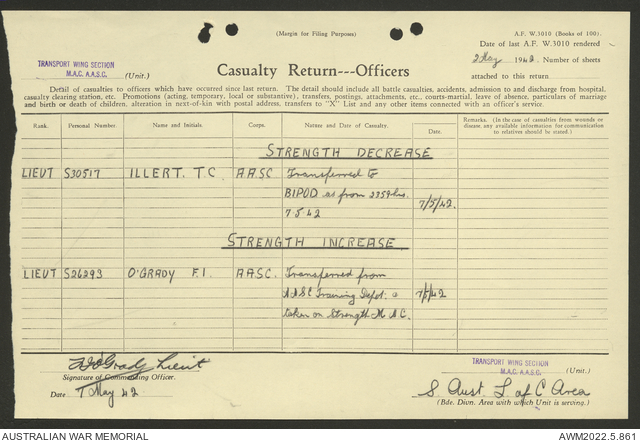 (Margin for Filing Purposes)
A.F. W.3010 (Books of 100).
Date of last A.F. W.3010 rendered
TRANSPORT WING SECTION
M.A.C. A.A.S.C. (Unit.)
2 May 1942. Number of sheets
Casualty Return---Officers
attached to this return
Detail of casualties to officers which have occurred since last return. The detail should include all battle casualties, accidents, admission to and discharge from hospital,
casualty clearing station, etc. Promotions (acting, temporary, local or substantive), transfers, postings, attachments, etc., courts-martial, leave of absence, particulars of marriage
and birth or death of children, alteration in next-of-kin with postal address, transfers to "X" List and any other items connected with an officer's service.
Rank. Personal Number. Name and Initials. Corps. Nature and Date of Casualty. Date. Remarks. (In the case of casualties from wounds or
disease any available information for communication
to relatives should be stated.)
STRENGTH DECREASE
LIEUT S30517 ILLERT. T.C A.A.SC Transferred to
BIPOD as from 2359 hrs.
7.5.42 7/5/42.
STRENGTH INCREASE.
LIEUT S26293 O'GRADY F.I. A.A.SC. Transferred from
A.A.S.C Training Depot. & 7/5/42
taken on Strength M.A.C.
O'Grady Lieut
Signature of Commanding Officer.
Date 7 May 42
TRANSPORT WING SECTION
M.A.C. A.A.S.C. (Unit.)
S. Aust. L of C Area
(Bde. Divn. Area with which Unit is serving.)
AUSTRALIAN WAR MEMORIAL
AWM2022.5.861